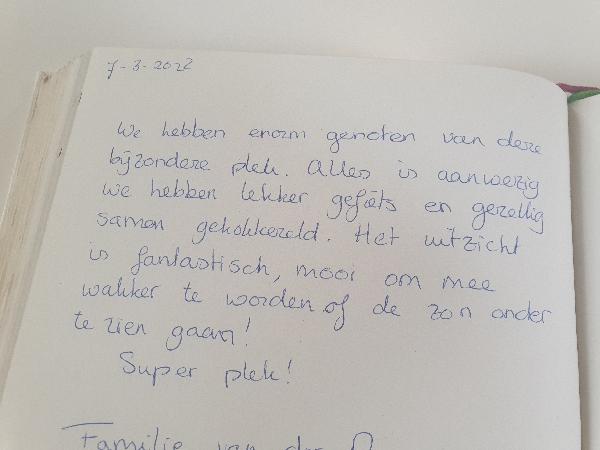 7-3-2022
We hebben enorm genoten van deze
bijzondere plek. Alles is aanwezig
we hebben lekker gefiets en gezellig
samen gekokkereld. Het uitzicht
is fantastisch, mooi om mee
wakker te worden of de zon onder
te zien gaan!
Super plek!
Familie van der